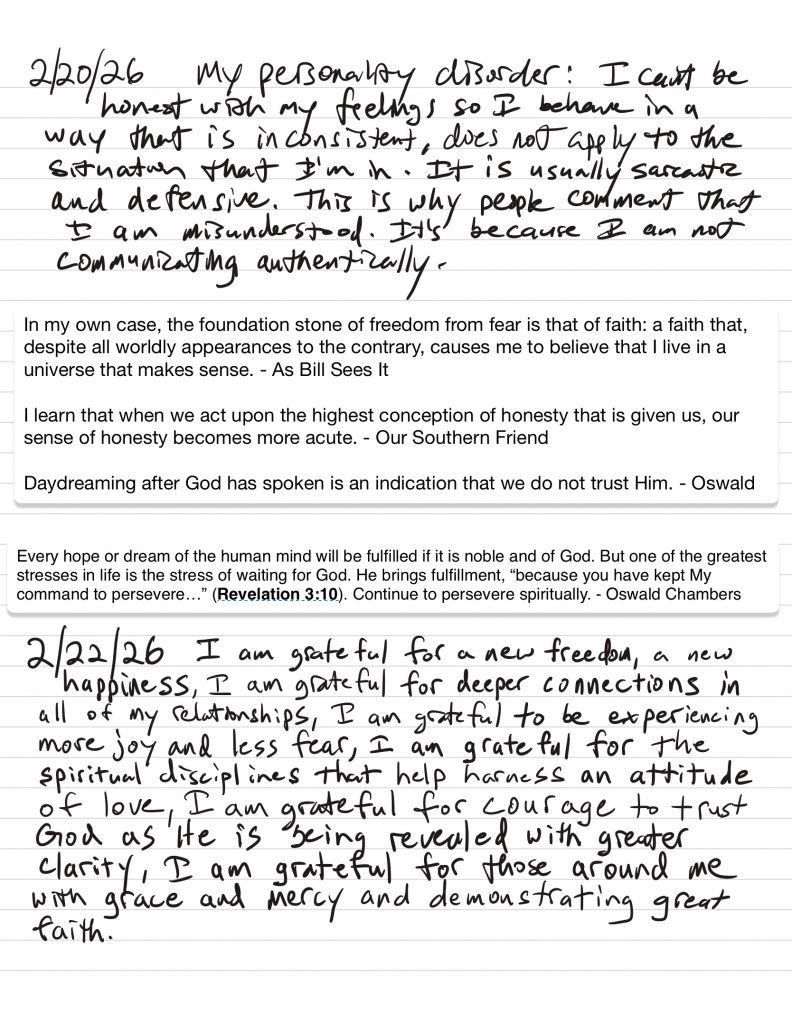 2/20/26 My personality disorder: I can't be
honest with my feelings so I behave in a
way that is inconsistent, does not apply to the
situation that I'm in. It is usually sarcastic
and defensive. This is why people comment that
I am misunderstood. It's because I am not
communicating authentically.
In my own case, the foundation stone of freedom from fear is that of faith: a faith that,
despite all worldly appearances to the contrary, causes me to believe that I live in a
universe that makes sense. - As Bill Sees It
I learn that when we act upon the highest conception of honesty that is given us, our
sense of honesty becomes more acute. - Our Southern Friend
Daydreaming after God has spoken is an indication that we do not trust Him. - Oswald
Every hope or dream of the human mind will be fulfilled if it is noble and of God. But one of the greatest
stresses in life is the stress of waiting for God. He brings fulfillment, “because you have kept My
command to persevere…” (Revelation 3:10). Continue to persevere spiritually. - Oswald Chambers
2/22/26 I am grateful for a new freedom, a new
happiness, I am grateful for deeper connections in
all of my relationships, I am grateful to be experiencing
more joy and less fear, I am grateful for the
spiritual disciplines that help harness an attitude
of love, I am grateful for courage to trust
God as He is being revealed with greater
clarity, I am grateful for those around me
with grace and mercy and demonstrating great
faith.